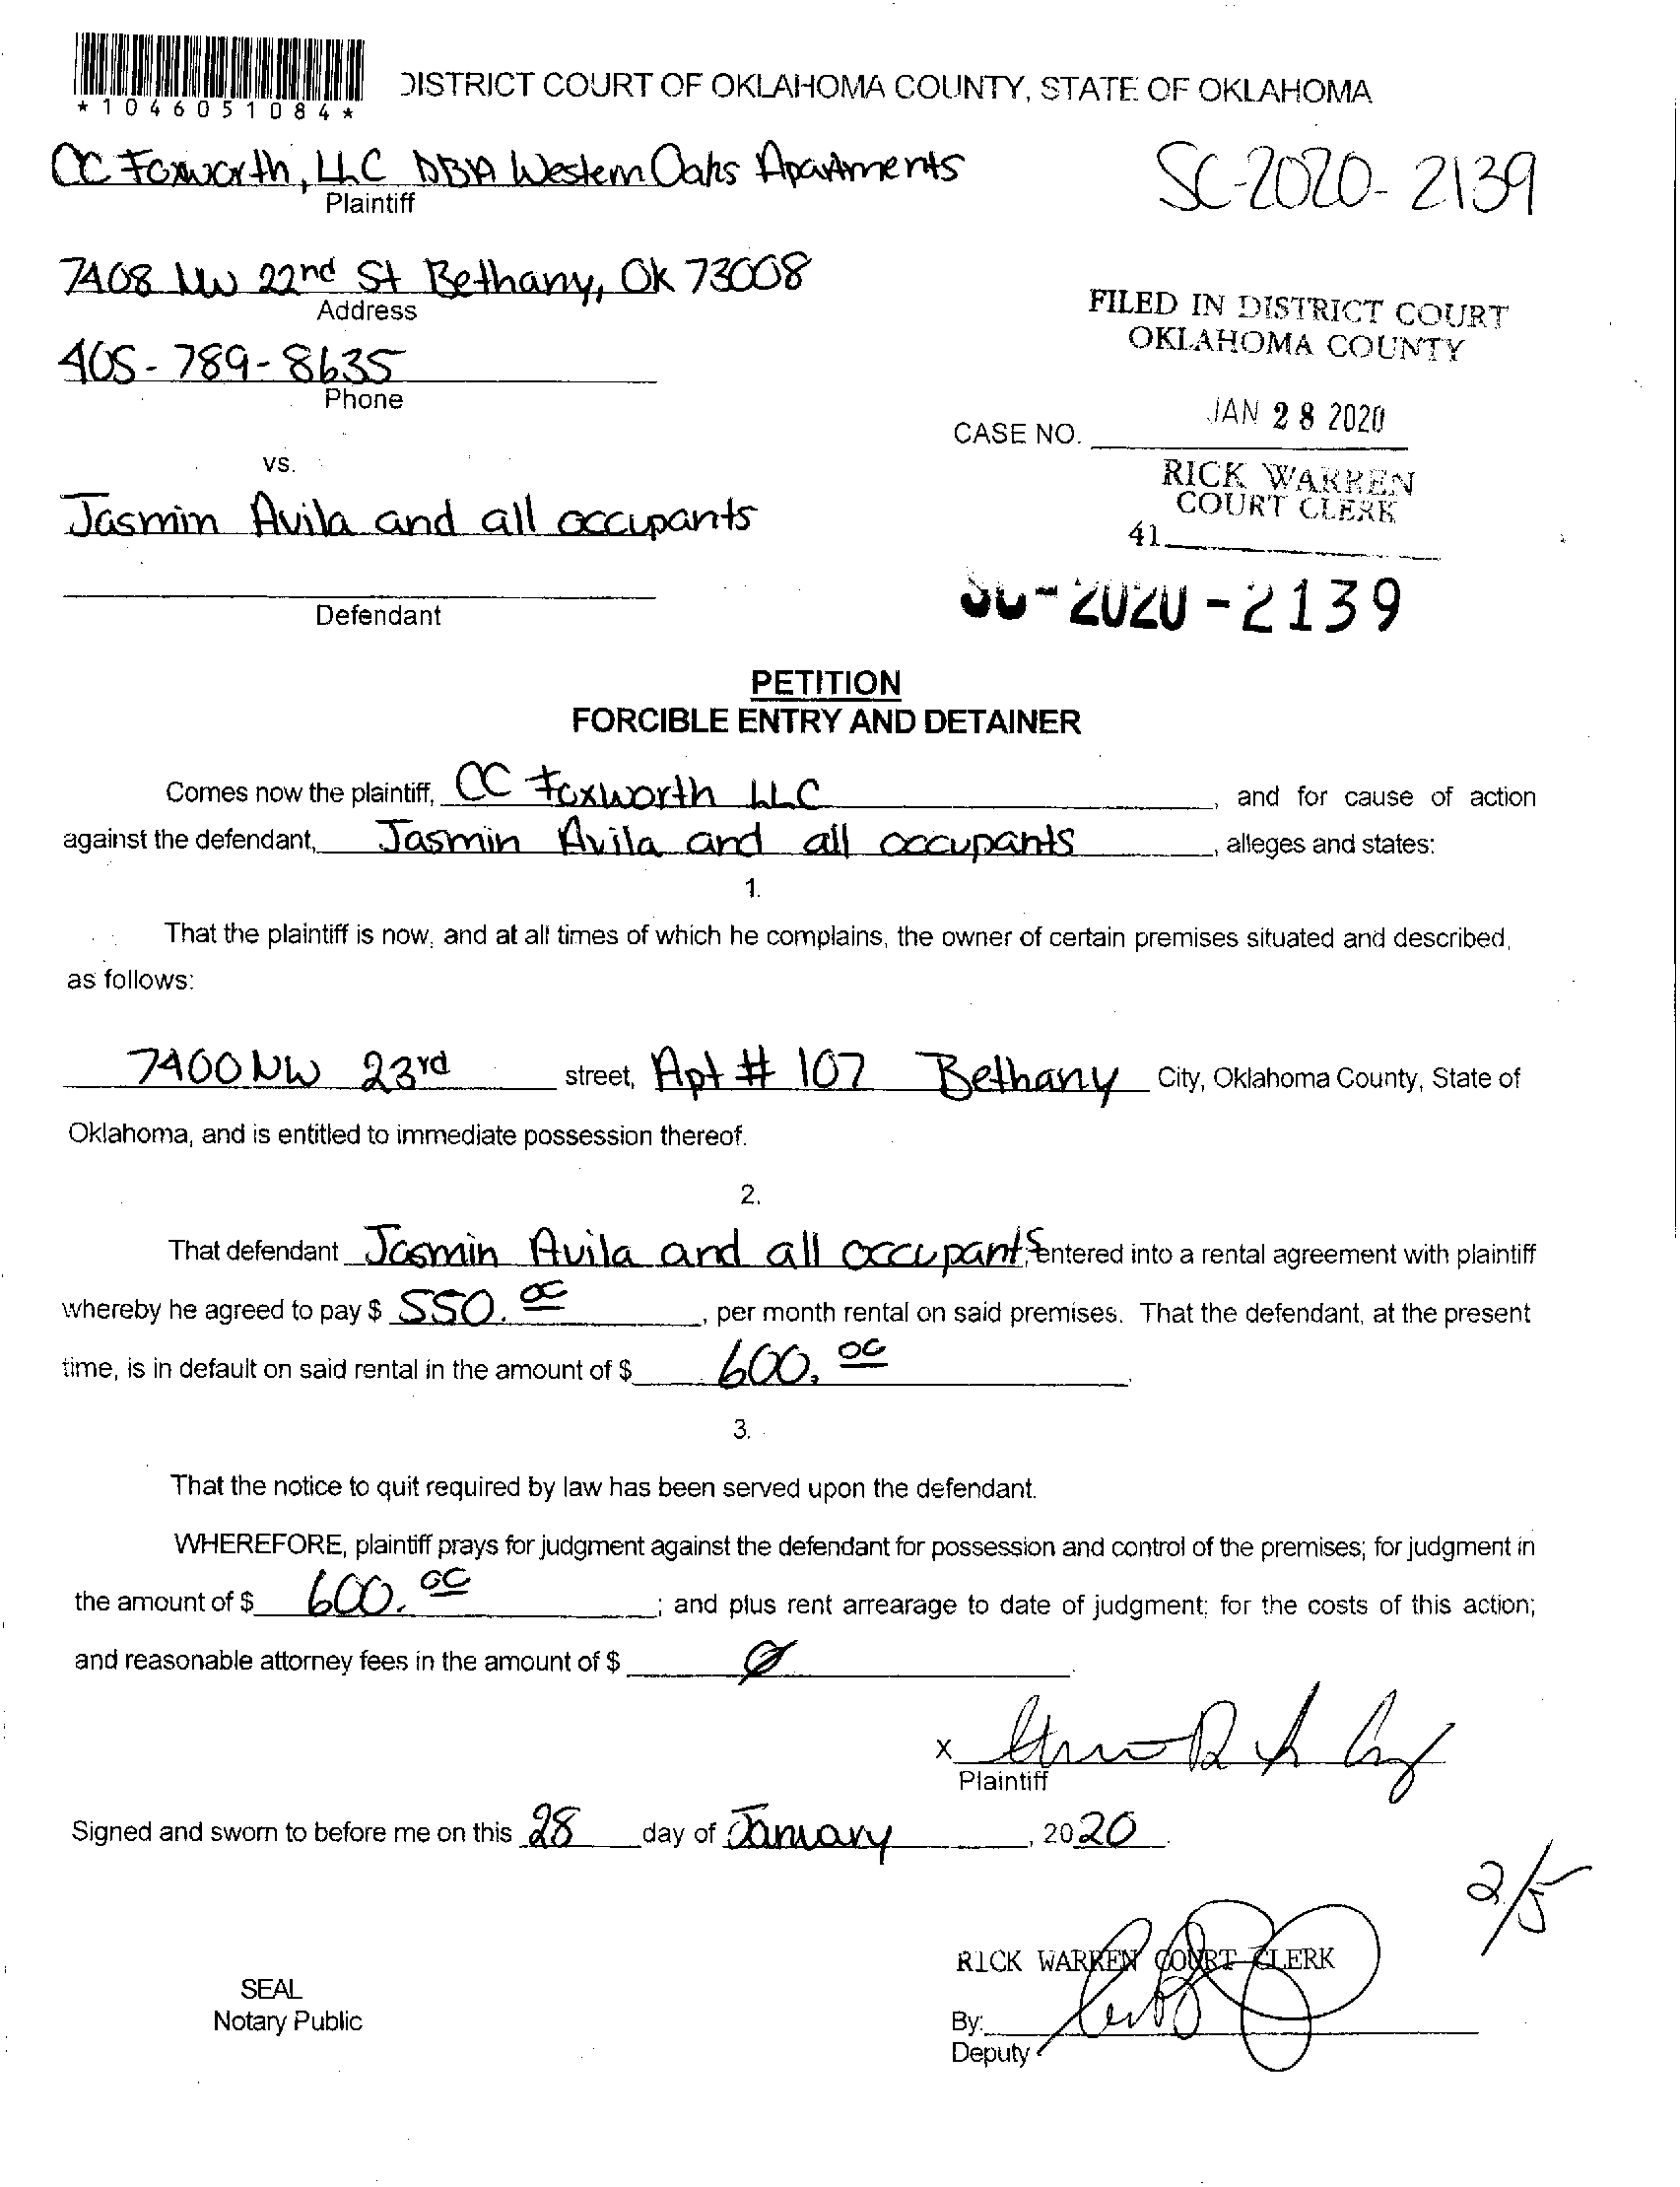 *1046051084*
DISTRICT COURT OF OKLAHOMA COUNTY, STATE OF OKLAHOMA
CC Foxworth, LLC DBA Western Oaks Apartments
SC-2020-2139
Plaintiff
7408 NW 22nd St Bethany, Ok 73008
Address
FILED IN DISTRICT COURT
OKLAHOMA COUNTY
405-789-8635
Phone
JAN 28 2020
CASE NO.
vs.
RICK WARREN
COURT CLERK
Jasmin Avila and all occupants
41
SC-2020-2139
Defendant
PETITION
FORCIBLE ENTRY AND DETAINER
Comes now the plaintiff, CC Foxworth LLC, and for cause of action
against the defendant, Jasmin Avila and all occupants, alleges and states:
1.
That the plaintiff is now, and at all times of which he complains, the owner of certain premises situated and described,
as follows:
7400 NW 23rd street, Apt # 107 Bethany City, Oklahoma County, State of
Oklahoma, and is entitled to immediate possession thereof.
2.
That defendant Jasmin Avila and all occupants entered into a rental agreement with plaintiff
whereby he agreed to pay $ 550.00, per month rental on said premises. That the defendant, at the present
time, is in default on said rental in the amount of $ 600.00.
3.
That the notice to quit required by law has been served upon the defendant.
WHEREFORE, plaintiff prays for judgment against the defendant for possession and control of the premises; for judgment in
the amount of $ 600.00; and plus rent arrearage to date of judgment; for the costs of this action;
and reasonable attorney fees in the amount of $ Ø.
x
Plaintiff
Signed and sworn to before me on this 28 day of January, 2020.
2/5
RICK WARREN COURT CLERK
SEAL
Notary Public
By:
Deputy